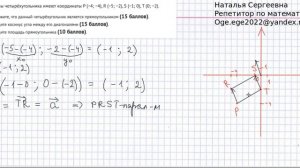 ы четырёхугольника имеют координаты P (-4; -4), R (-5; -2), S (-1; 0), T (0; -2).
ите, что данный четырёхугольник является прямоугольником (15 баллов)
ите косинус угла между его диагоналями (15 баллов)
ите площадь прямоугольника (10 баллов)
Наталья Сергеевна
Репетитор по математ
Oge.ege2022@yandex.
(-5-(-4); -2-(-4)) = (-1; 2)
x₀ y₀
(-1-0; 0-(-2)) = (-1; 2)
= TR = a ⇒ PRST-парал-м
R
P
S
T